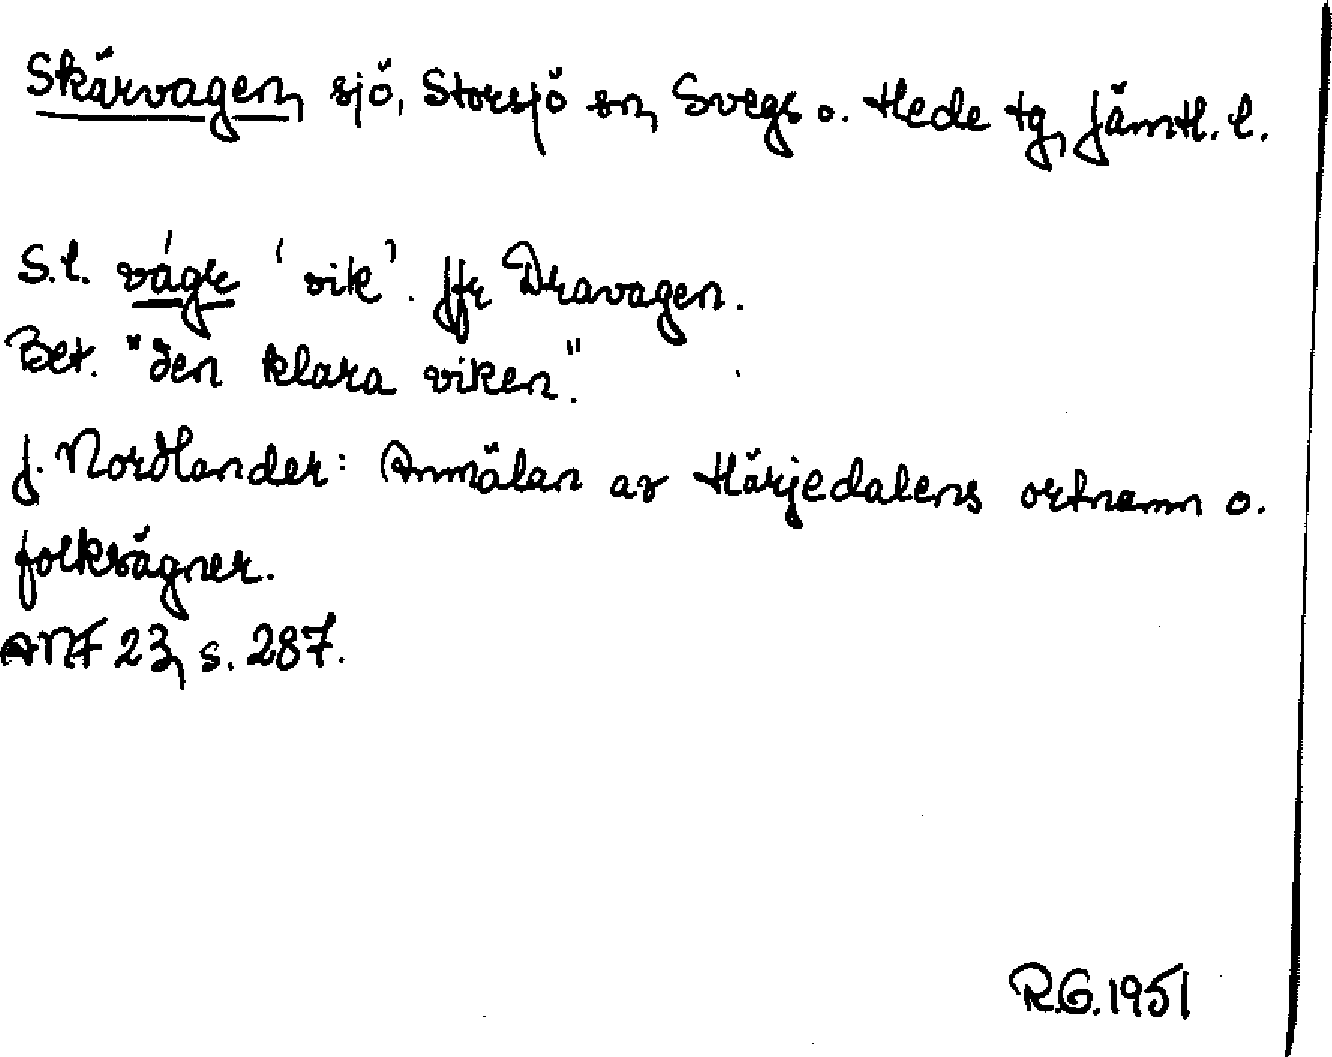 Skärvagen, sjö, Storsjö sn, Svegs o. Hede tg, Jämtl. l.
S.l. vágr 'vik'. Jfr Dravagen.
Bet. "den klara viken".
J. Nordlander: Anmälan av Härjedalens ortnamn o.
folksägner.
ANF 23, s. 287.
R.G. 1951